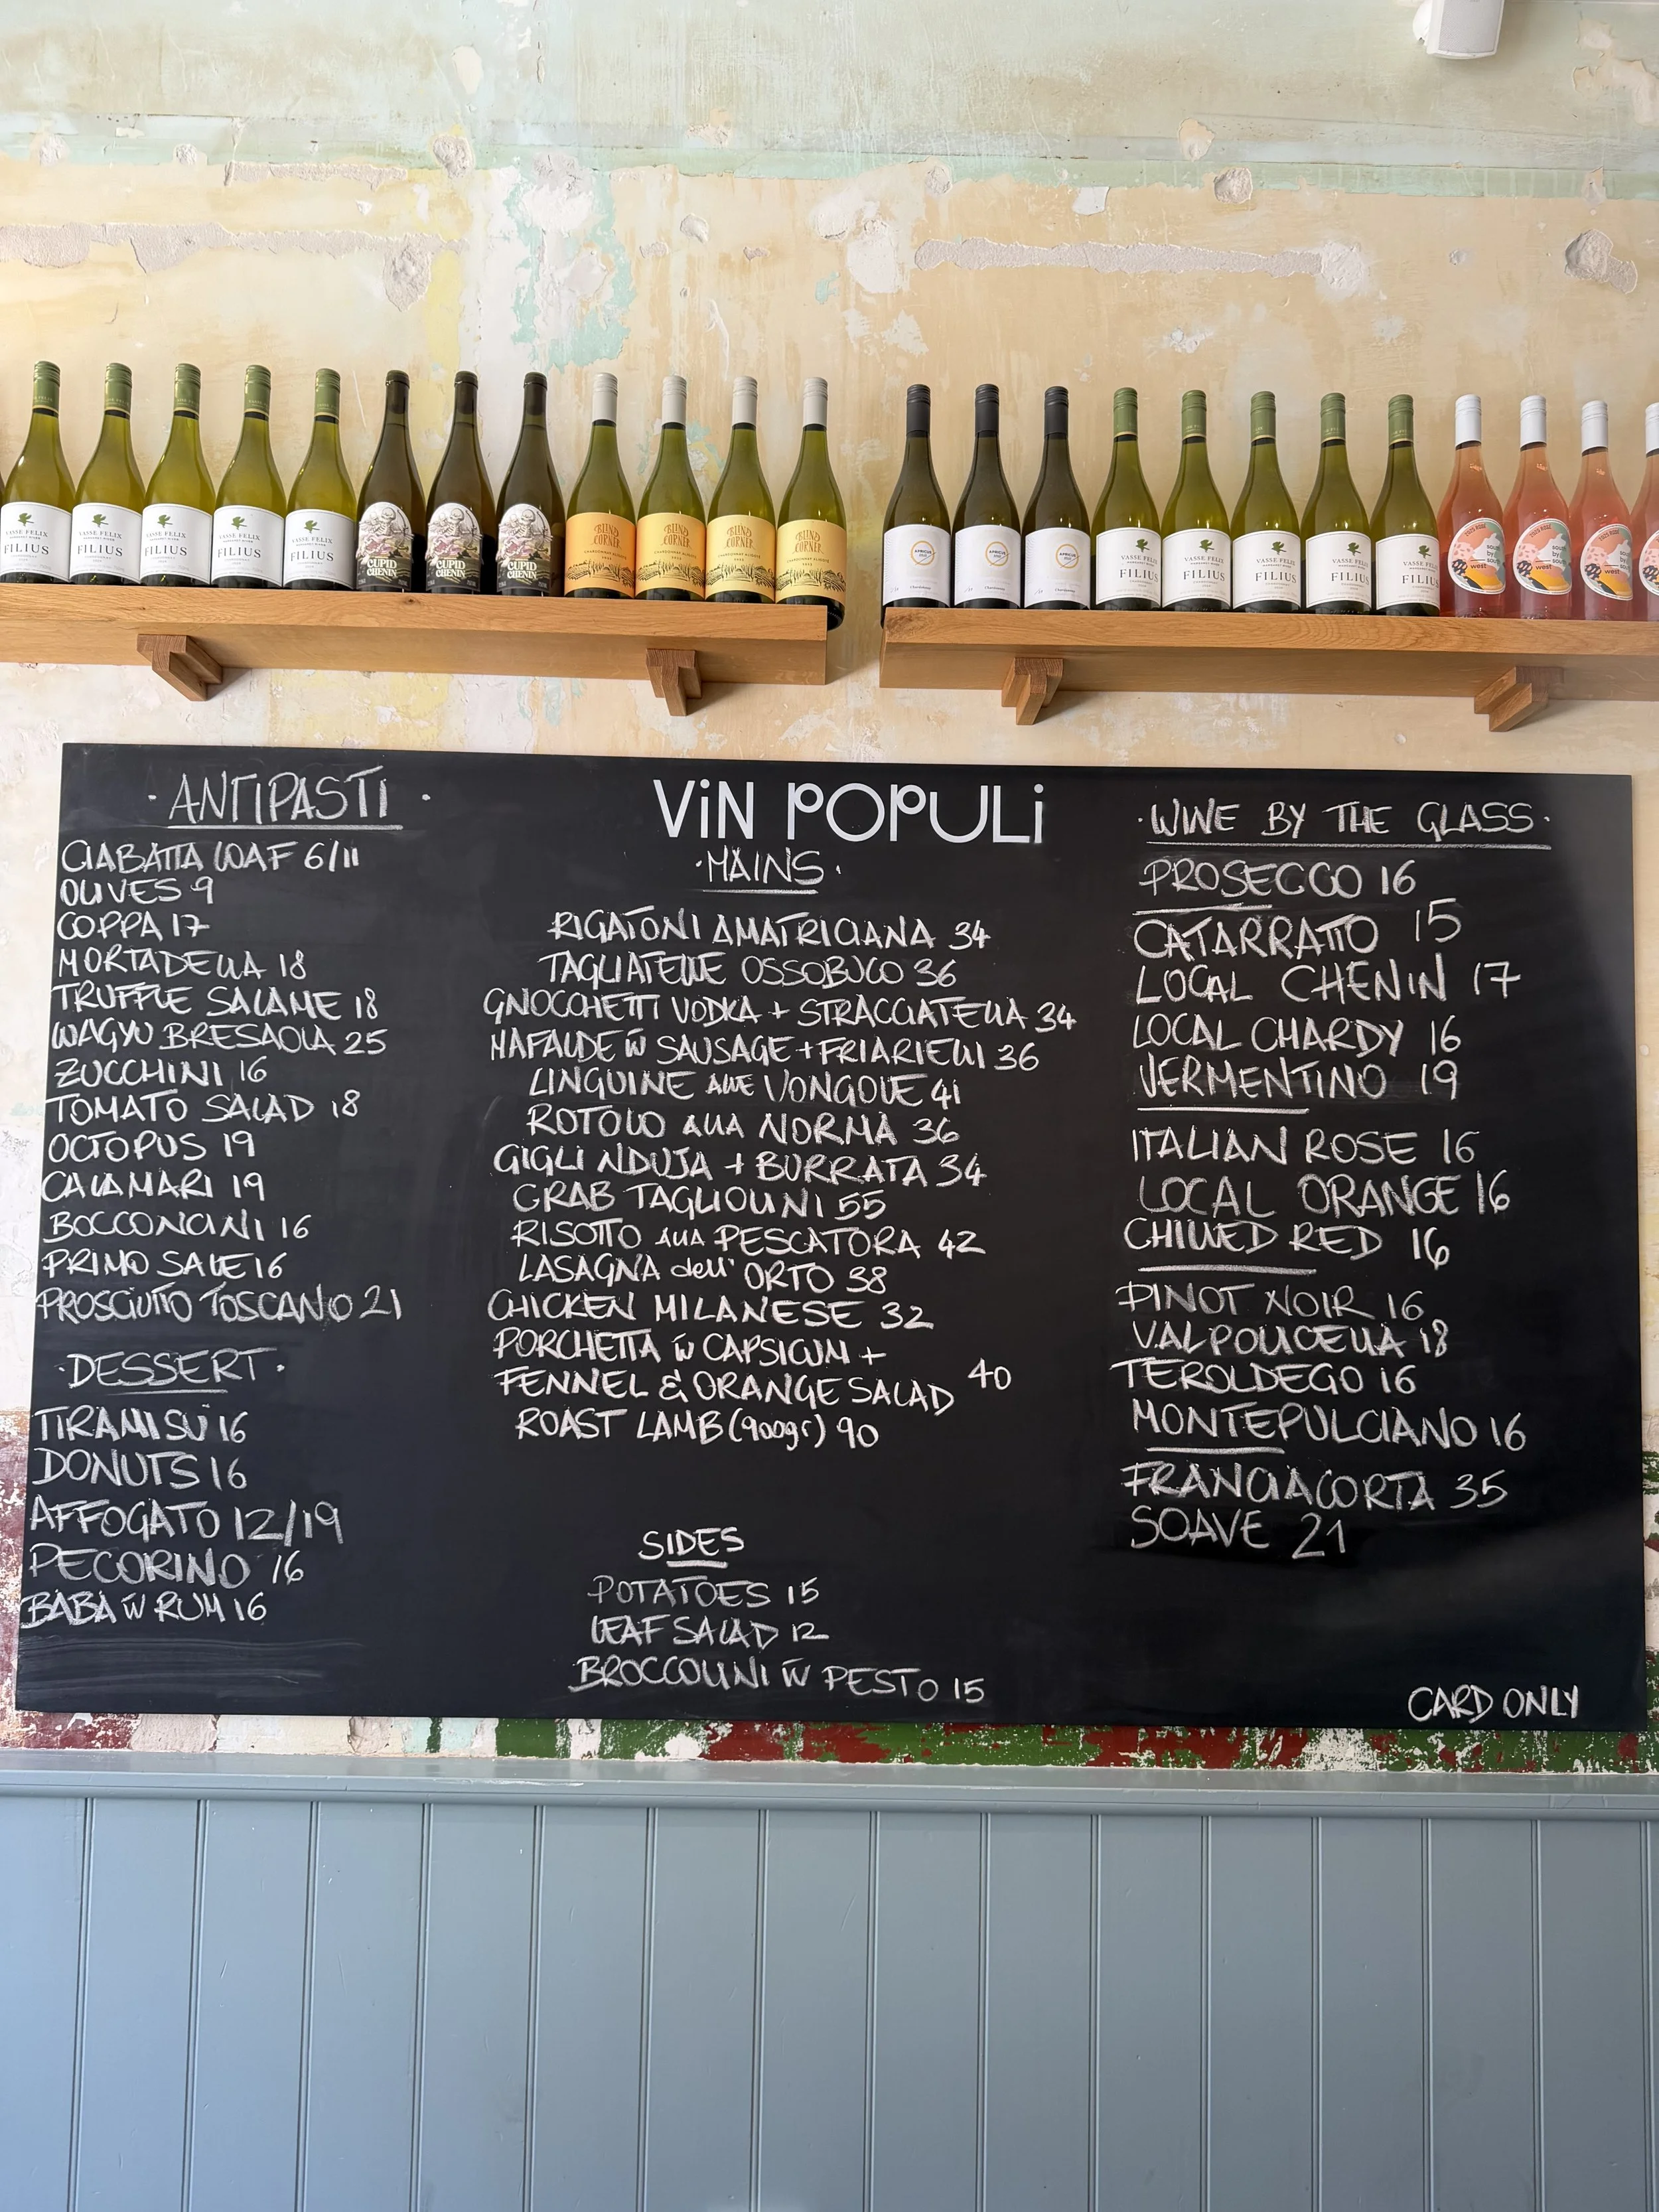 VASSE FELIX
FILIUS
VASSE FELIX
FILIUS
VASSE FELIX
FILIUS
VASSE FELIX
FILIUS
VASSE FELIX
FILIUS
CUPID
CHENIN
CUPID
CHENIN
CUPID
CHENIN
BLIND
CORNER
BLIND
CORNER
BLIND
CORNER
BLIND
CORNER
Chardonnay
Chardonnay
Chardonnay
VASSE FELIX
FILIUS
VASSE FELIX
FILIUS
VASSE FELIX
FILIUS
VASSE FELIX
FILIUS
VASSE FELIX
FILIUS
south
by
south
west
south
by
south
west
south
by
south
west
· ANTIPASTI ·
CIABATTA LOAF 6/11
OLIVES 9
COPPA 17
MORTADELLA 18
TRUFFLE SALAME 18
WAGYU BRESAOLA 25
ZUCCHINI 16
TOMATO SALAD 18
OCTOPUS 19
CALAMARI 19
BOCCONCINI 16
PRIMO SALE 16
PROSCIUTTO TOSCANO 21
· DESSERT ·
TIRAMISÙ 16
DONUTS 16
AFFOGATO 12/19
PECORINO 16
BABA W RUM 16
ViN POPULi
· MAINS ·
RIGATONI AMATRICIANA 34
TAGLIATELLE OSSOBUCO 36
GNOCCHETTI VODKA + STRACCIATELLA 34
MAFALDE W SAUSAGE + FRIARIELLI 36
LINGUINE ALLE VONGOLE 41
ROTOLO ALLA NORMA 36
GIGLI NDUJA + BURRATA 34
CRAB TAGLIOLINI 55
RISOTTO ALLA PESCATORA 42
LASAGNA dell' ORTO 38
CHICKEN MILANESE 32
PORCHETTA W CAPSICUM +
FENNEL & ORANGE SALAD 40
ROAST LAMB (900gr) 90
SIDES
POTATOES 15
LEAF SALAD 12
BROCCOLINI W PESTO 15
· WINE BY THE GLASS ·
PROSECCO 16
CATARRATTO 15
LOCAL CHENIN 17
LOCAL CHARDY 16
VERMENTINO 19
ITALIAN ROSE 16
LOCAL ORANGE 16
CHILLED RED 16
PINOT NOIR 16
VALPOLICELLA 18
TEROLDEGO 16
MONTEPULCIANO 16
FRANCIACORTA 35
SOAVE 21
CARD ONLY